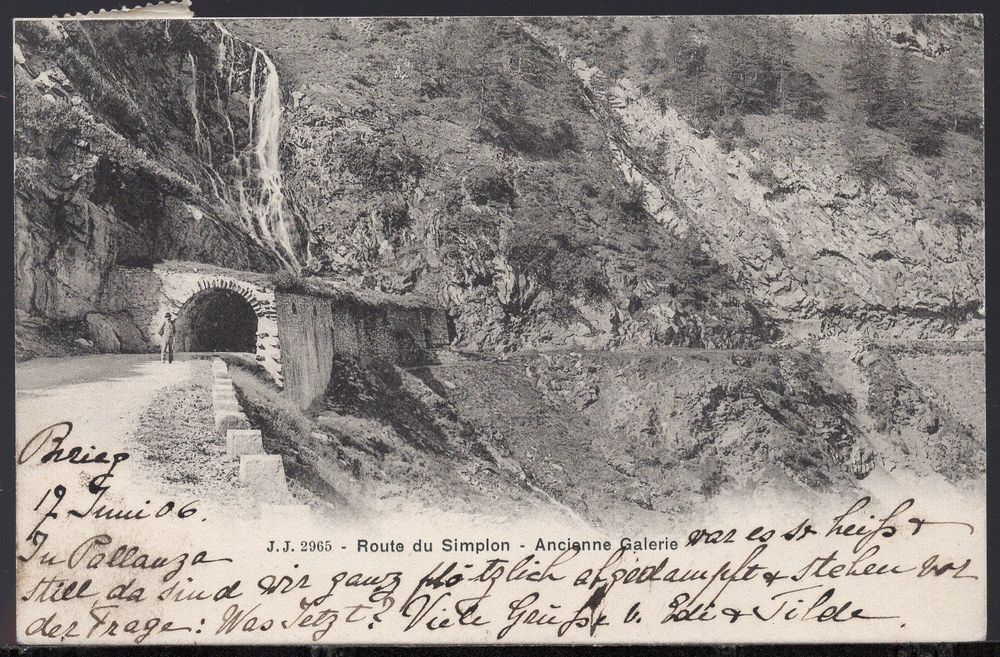 Brieg
17 Juni 06.
J.J. 2965 - Route du Simplon - Ancienne Galerie
In Pallanza war es so heiß &
still da sind wir ganz plötzlich abgedampft & stehen vor
der Frage: Was Jetzt? Viele Grüße v. Edi & Tilde.